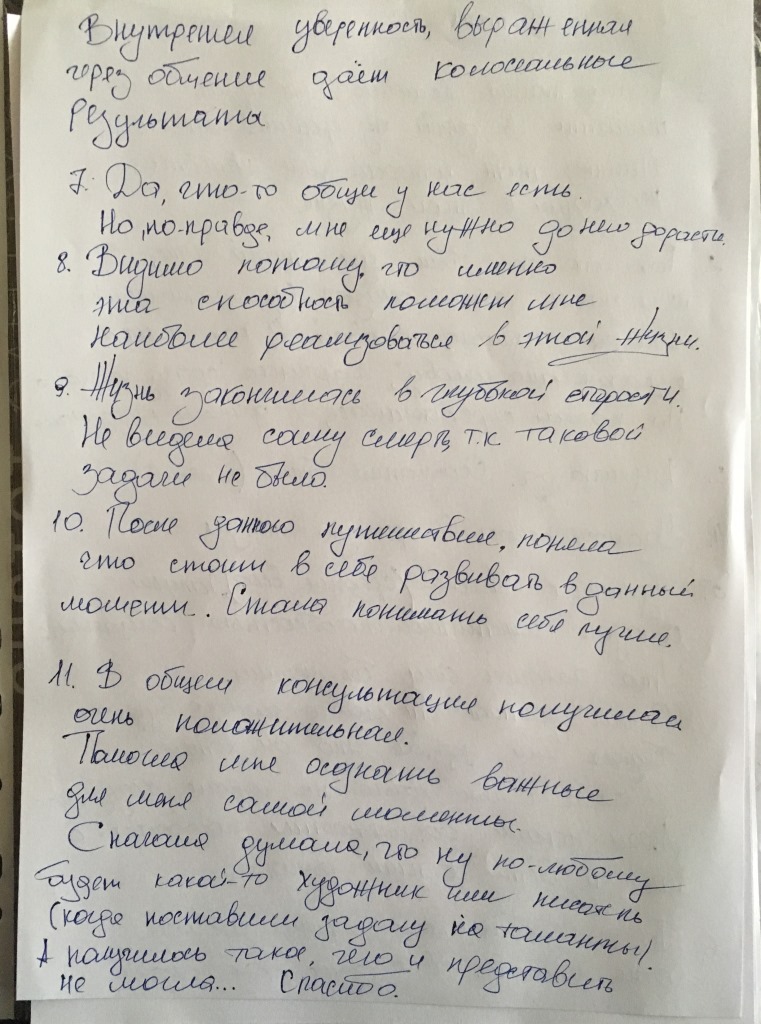 Внутреняя уверенность, выраженная
через общение даёт колоссальные
результаты
7. Да, что-то общее у нас есть.
Но, по-правде, мне еще нужно до него дорасти.
8. Видимо потому, что именно
эта способность поможет мне
наиболее реализоваться в этой жизни.
9. Жизнь закончилась в глубокой старости.
Не видела саму смерть, т.к. таковой
задачи не было.
10. После данного путешествия, поняла
что стоит в себе развивать в данный
момент. Стала понимать себя лучше.
11. В общем консультация получилась
очень положительная.
Помогла мне осознать важные
для меня самой моменты.
Сначала думала, что ну по-любому
будет какой-то художник или писатель
(когда поставили задачу на таланты).
А получилось такое, чего и представить
не могла... Спасибо.